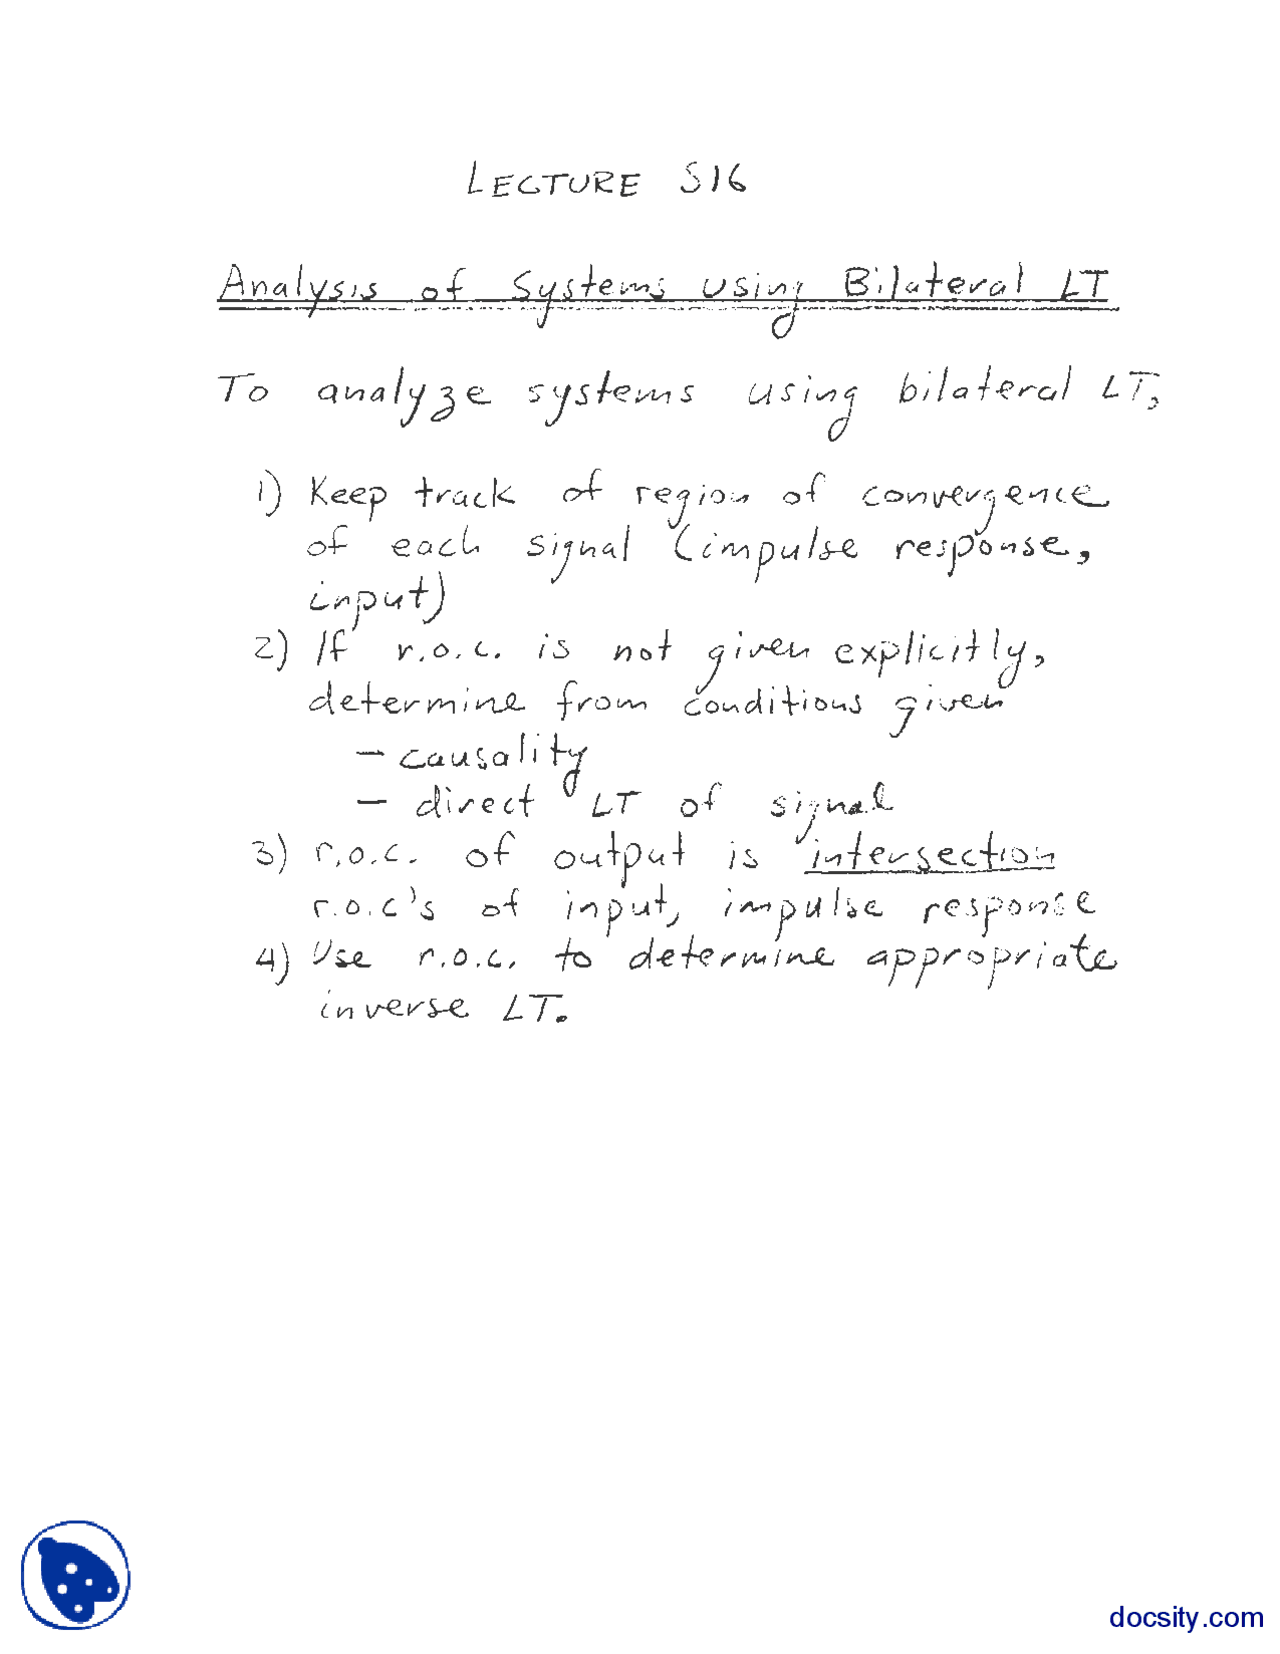 LECTURE S16
Analysis of Systems using Bilateral LT
To analyze systems using bilateral LT,
1) Keep track of region of convergence
of each signal (impulse response,
input)
2) If r.o.c. is not given explicitly,
determine from conditions given
- causality
- direct LT of signal
3) r.o.c. of output is intersection
r.o.c's of input, impulse response
4) Use r.o.c. to determine appropriate
inverse LT.
docsity.com